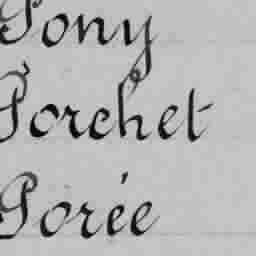 Pony
Porchet
Porée